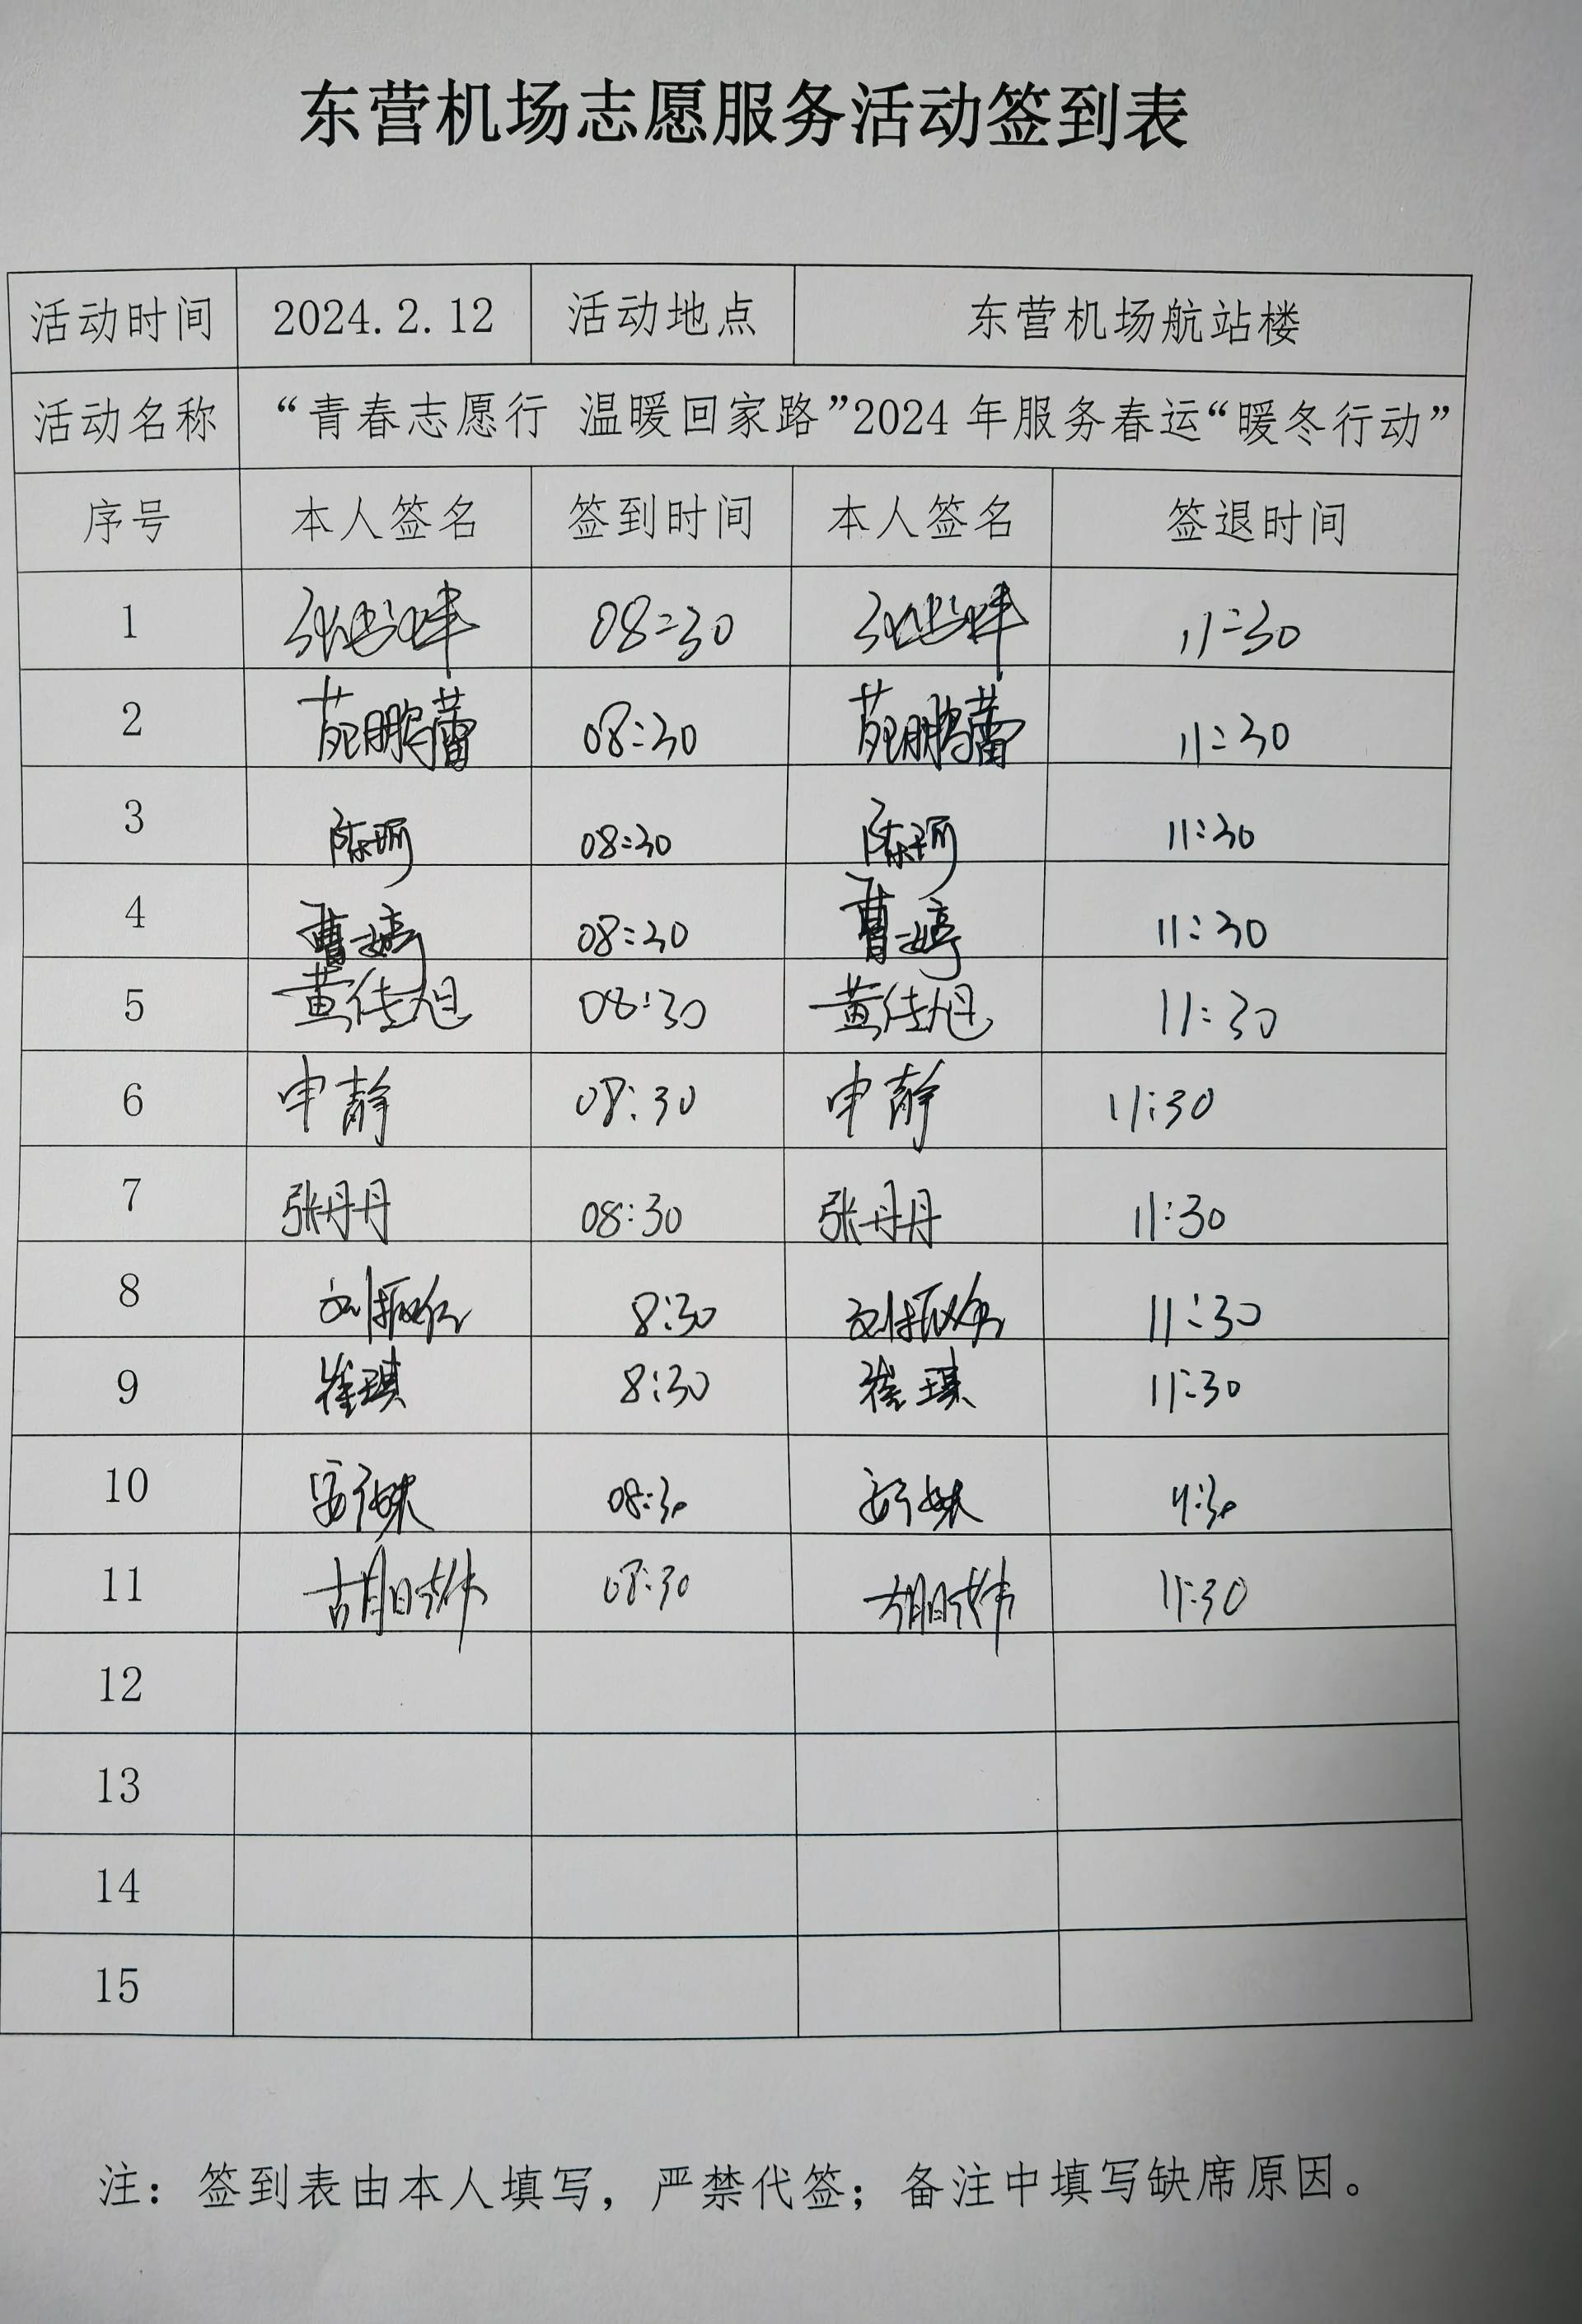 东营机场志愿服务活动签到表
活动时间 2024.2.12 活动地点 东营机场航站楼
活动名称 “青春志愿行 温暖回家路”2024年服务春运“暖冬行动”
序号 本人签名 签到时间 本人签名 签退时间
1 08:30 11:30
2 苑鹏蕾 08:30 苑鹏蕾 11:30
3 陈珂 08:30 陈珂 11:30
4 曹婷 08:30 曹婷 11:30
5 黄佳旭 08:30 黄佳旭 11:30
6 申静 08:30 申静 11:30
7 张丹丹 08:30 张丹丹 11:30
8 8:30 11:30
9 崔琪 8:30 崔琪 11:30
10 08:30 11:30
11 08:30 11:30
12
13
14
15
注：签到表由本人填写，严禁代签；备注中填写缺席原因。